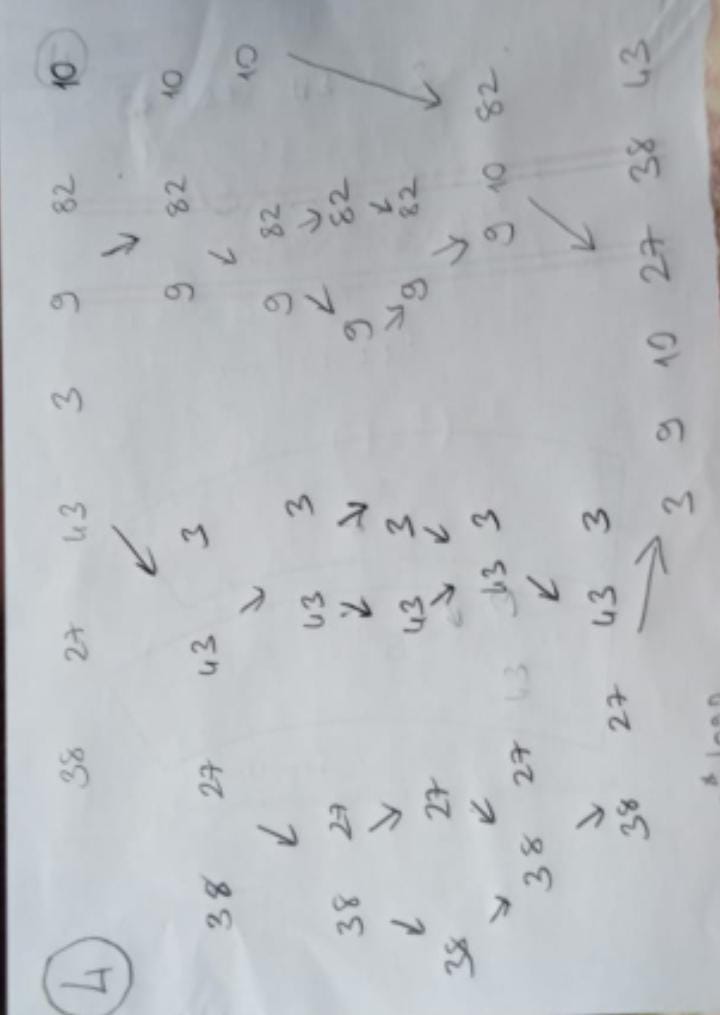 4 38 27 43 3 9 82 10
38 27 43 3 9 82 10
38 27 43 3 9 82 10
38 27 43 3 9 82
38 27 43 43 3 9 82
38 27 43 3 9 10 82
3 9 10 27 38 43